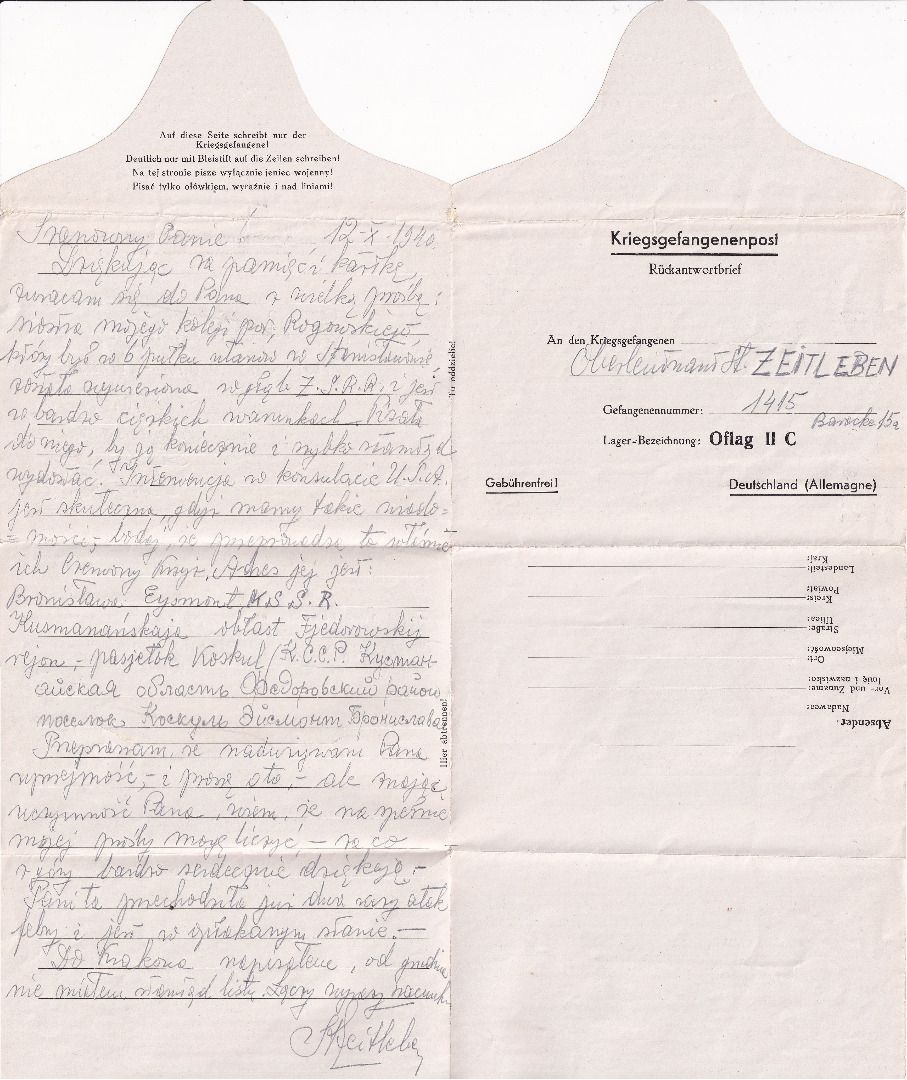 Auf diese Seite schreibt nur der
Kriegsgefangene!
Deutlich nur mit Bleistift auf die Zeilen schreiben!
Na tej stronie pisze wyłącznie jeniec wojenny!
Pisać tylko ołówkiem, wyraźnie i nad liniami!
Szanowny Panie! 12-X-1940.
Dziękując za pamięć i kartkę,
zwracam się do Pana z wielką prośbą:
siostra mojego kolegi por. Rogowskiego
który był w 6 pułku ułanów w Stanisławowie
została wywieziona w głąb Z.S.R.R. i jest
w bardzo ciężkich warunkach. Pisała
do niego, by ją koniecznie i szybko stamtąd
wydostać. Interwencja w konsulacie U.S.A.
jest skuteczna, gdyż mamy takie wiado-
=mości,- bodaj, że przeprowadza to właśnie
ich Czerwony Krzyż. Adres jej jest:
Bronisława Eysmont K.S.S.R.
Kustanańskaja obłast Fjedorowskij
rejon,- pasjełok Koskul /К.С.С.Р. Кустан-
айская область Федоровский район
поселок Коскуль Эйсмонт Бронислава
Przepraszam, że nadużywam Pana
uprzejmość,- i proszę o to,- ale znając
uczynność Pana, wiem, że na spełnienie
mojej prośby mogę liczyć - za co
z góry bardzo serdecznie dziękuję.-
Pani ta przechodziła już dwa razy atak
febry i jest w opłakanym stanie.-
Do Krakowa napisałem, od grudnia
nie miałem stamtąd listu. Łączę wyrazy szacunku
StZeitleben
Tu oddzielić!
Hier abtrennen!
Kriegsgefangenenpost
Rückantwortbrief
An den Kriegsgefangenen
Oberleutnant St. ZEITLEBEN
Gefangenennummer: 1415
Baracke 15a
Lager-Bezeichnung: Oflag II C
Gebührenfrei! Deutschland (Allemagne)
Absender:
Nadawca:
Vor- und Zuname:
Imię i nazwisko:
Ort:
Miejscowość:
Straße:
Ulica:
Kreis:
Powiat:
Landesteil:
Kraj: